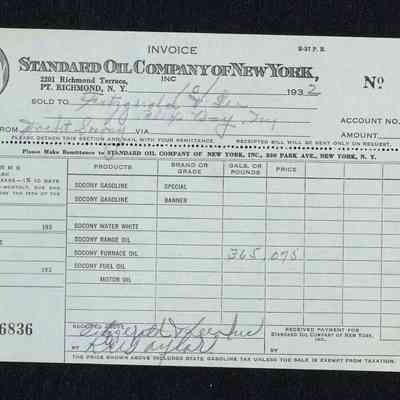 INVOICE
S-37 P. R.
STANDARD OIL COMPANY OF NEW YORK,
INC
2201 Richmond Terrace,
PT. RICHMOND, N. Y. 10/ 1932
Nº
SOLD TO Fitzgerald &
Bay,
ACCOUNT NO.
FROM VIA AMOUNT
PLEASE DETACH THIS SECTION AND MAIL WITH YOUR REMITTANCE. RECEIPTED BILL WILL BE SENT ONLY ON REQUEST.
Please Make Remittance to STANDARD OIL COMPANY OF NEW YORK, INC., 230 PARK AVE., NEW YORK, N. Y.
PRODUCTS
BRAND OR GRADE
GALS. OR POUNDS
PRICE
SOCONY GASOLINE SPECIAL
SOCONY GASOLINE BANNER
193
SOCONY WATER WHITE
SOCONY RANGE OIL
SOCONY FURNACE OIL 365 .075
193
SOCONY FUEL OIL
MOTOR OIL
6836
RECEIVED ABOVE
Fitzgerald
BY
RECEIVED PAYMENT FOR
STANDARD OIL COMPANY OF NEW YORK, INC.
THE PRICE SHOWN ABOVE INCLUDES STATE GASOLINE TAX UNLESS THE SALE IS EXEMPT FROM TAXATION.